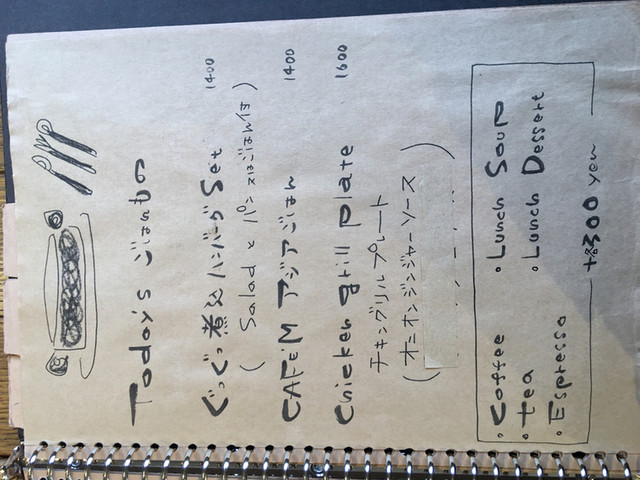 Today's ごはんもの
ぐつぐつ煮込ハンバーグ Set 1400
( Salad と パン又はごはん付 )
CAFE'M アジアごはん 1400
Chicken grill Plate 1600
チキングリル プレート
( オニオンジンジャーソース )
・Coffee ・Lunch Soup
・tea ・Lunch Dessert
・Espresso
+300 yen